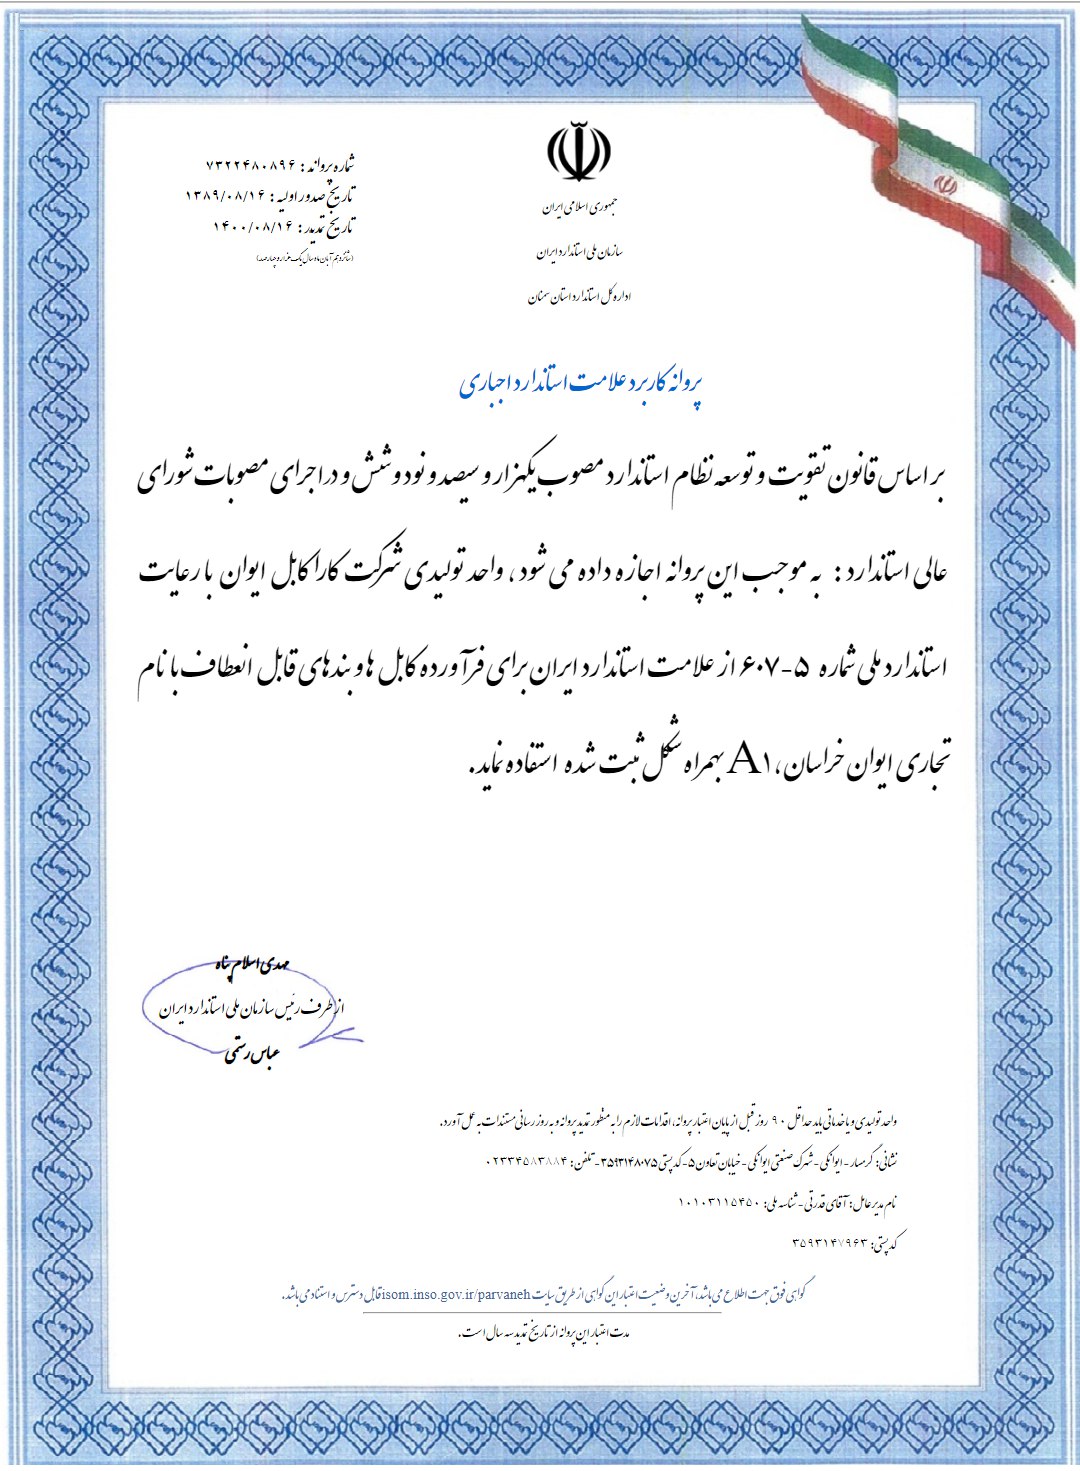 جمهوری اسلامی ایران
سازمان ملی استاندارد ایران
اداره کل استاندارد استان سمنان
شماره پروانه : ۷۳۲۲۴۸۰۸۹۶
تاریخ صدور اولیه : ۱۳۸۹/۰۸/۱۶
تاریخ تمدید : ۱۴۰۰/۰۸/۱۶
(شانزدهم آبان ماه سال یک هزار و چهارصد)
پروانه کاربرد علامت استاندارد اجباری
بر اساس قانون تقویت و توسعه نظام استاندارد مصوب یکهزار و سیصد و نود و شش و در اجرای مصوبات شورای
عالی استاندارد : به موجب این پروانه اجازه داده می شود ، واحد تولیدی شرکت کارا کابل ایوان با رعایت
استاندارد ملی شماره ۵-۶۰۷ از علامت استاندارد ایران برای فرآورده کابل ها و بندهای قابل انعطاف با نام
تجاری ایوان خراسان، A۱ بهمراه شکل ثبت شده استفاده نماید.
مهدی اسلام پناه
از طرف رئیس سازمان ملی استاندارد ایران
عباس رستمی
واحد تولیدی و یا خدماتی باید حداقل ۹۰ روز قبل از پایان اعتبار پروانه، اقدامات لازم را به منظور تمدید پروانه و به روز رسانی مستندات به عمل آورد.
نشانی: گرمسار - ایوانکی - شهرک صنعتی ایوانکی - خیابان تعاون ۵ - کد پستی ۳۵۹۳۱۴۸۰۷۵ - تلفن: ۰۲۳۳۴۵۸۳۸۸۴
نام مدیر عامل: آقای قدرتی - شناسه ملی: ۱۰۱۰۳۱۱۵۴۵۰
کد پستی: ۳۵۹۳۱۴۷۹۶۳
گواهی فوق جهت اطلاع می باشد، آخرین وضعیت اعتبار این گواهی از طریق سایت isom.inso.gov.ir/parvaneh قابل دسترس و استناد می باشد.
مدت اعتبار این پروانه از تاریخ تمدید سه سال است.